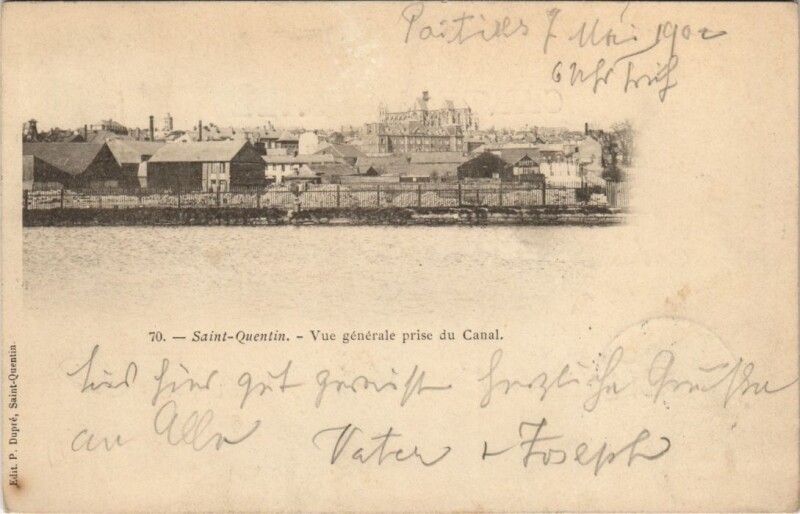 Poitiers 7 Mai 1902
6 Uhr früh
70. — Saint-Quentin. - Vue générale prise du Canal.
bis hier gut gereist herzliche Grüße
an Alle Vater + Joseph
Edit. P. Dupré, Saint-Quentin.